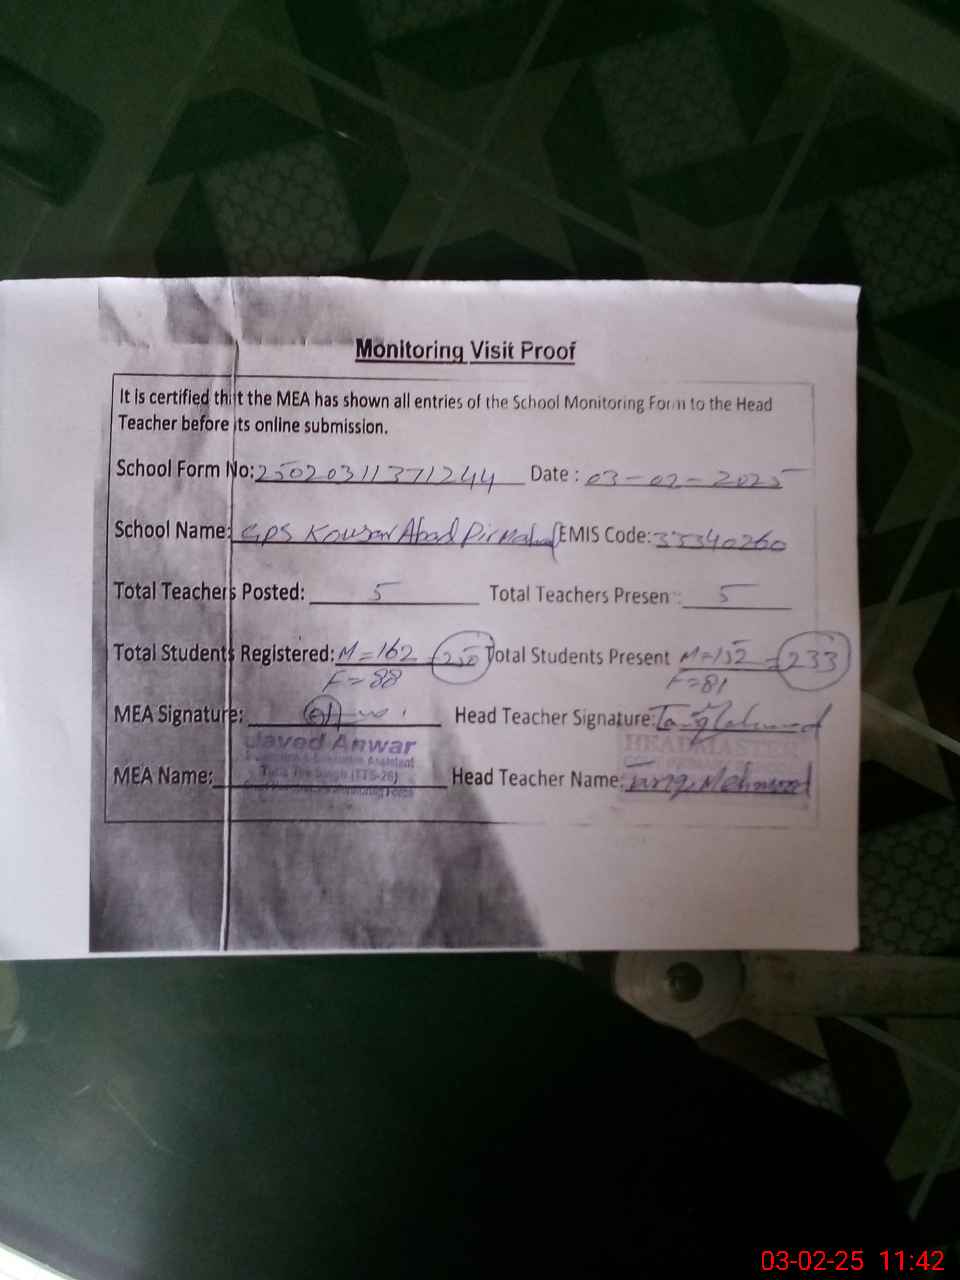 Monitoring Visit Proof
It is certified that the MEA has shown all entries of the School Monitoring Form to the Head
Teacher before its online submission.
School Form No: 25020311371244 Date : 03-02-2025
School Name: GPS Kousar Abad Pirmahal EMIS Code: 33340260
Total Teachers Posted: 5 Total Teachers Presen : 5
Total Students Registered: M=162 250 Total Students Present M=152 = 233
F=88 F=81
MEA Signature: Head Teacher Signature:
Javed Anwar HEADMASTER
Assistant
MEA Name: Head Teacher Name: Tariq Mehmood
03-02-25 11:42